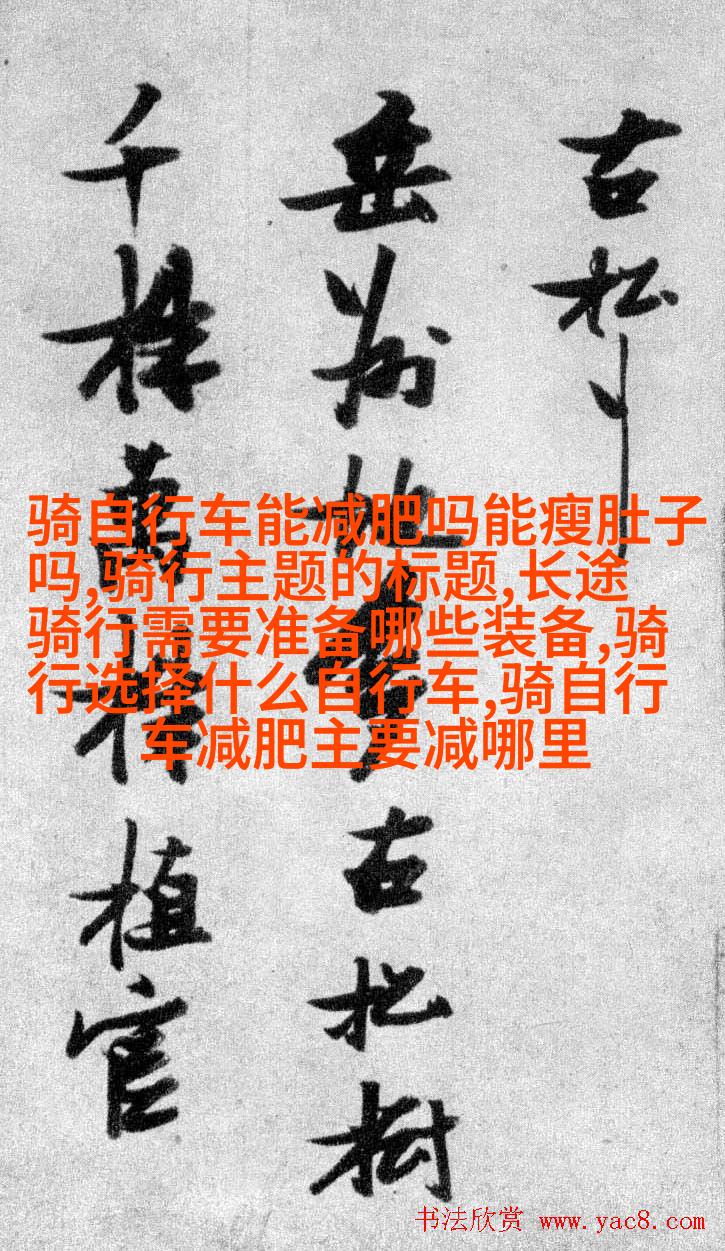 骑自行车能减肥吗能瘦肚子
吗,骑行主题的标题,长途
骑行需要准备哪些装备,骑
行选择什么自行车,骑自行
车减肥主要减哪里
古松
岳州地古松樹
千株植官
书法欣赏 www.yac8.com